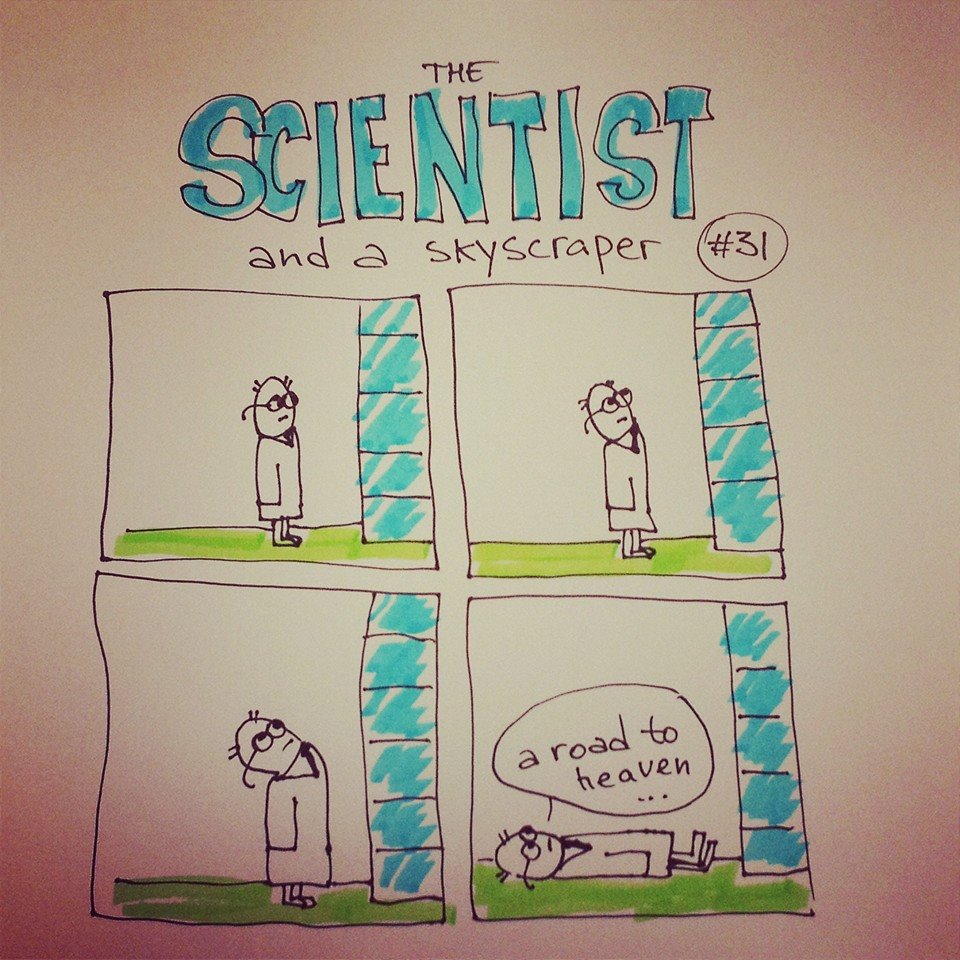 THE
SCIENTIST
and a skyscraper #31
a road to
heaven
...